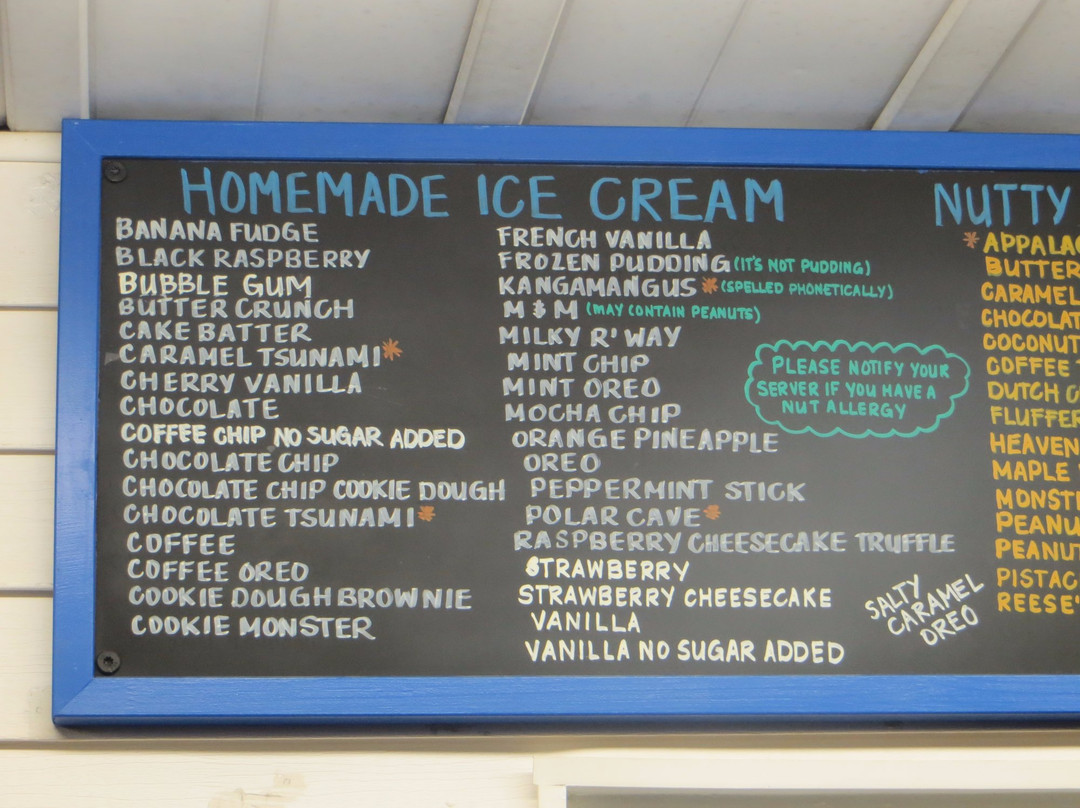 HOMEMADE ICE CREAM
BANANA FUDGE
BLACK RASPBERRY
BUBBLE GUM
BUTTER CRUNCH
CAKE BATTER
CARAMEL TSUNAMI*
CHERRY VANILLA
CHOCOLATE
COFFEE CHIP NO SUGAR ADDED
CHOCOLATE CHIP
CHOCOLATE CHIP COOKIE DOUGH
CHOCOLATE TSUNAMI*
COFFEE
COFFEE OREO
COOKIE DOUGH BROWNIE
COOKIE MONSTER
FRENCH VANILLA
FROZEN PUDDING (IT'S NOT PUDDING)
KANGAMANGUS * (SPELLED PHONETICALLY)
M & M (MAY CONTAIN PEANUTS)
MILKY R' WAY
MINT CHIP
MINT OREO
MOCHA CHIP
ORANGE PINEAPPLE
OREO
PEPPERMINT STICK
POLAR CAVE*
RASPBERRY CHEESECAKE TRUFFLE
STRAWBERRY
STRAWBERRY CHEESECAKE
VANILLA
VANILLA NO SUGAR ADDED
PLEASE NOTIFY YOUR
SERVER IF YOU HAVE A
NUT ALLERGY
SALTY
CARAMEL
OREO
NUTTY
* APPALAC
BUTTER
CARAMEL
CHOCOLAT
COCONUT
COFFEE
DUTCH
FLUFFER
HEAVEN
MAPLE
MONST
PEANU
PEANUT
PISTAC
REESE'